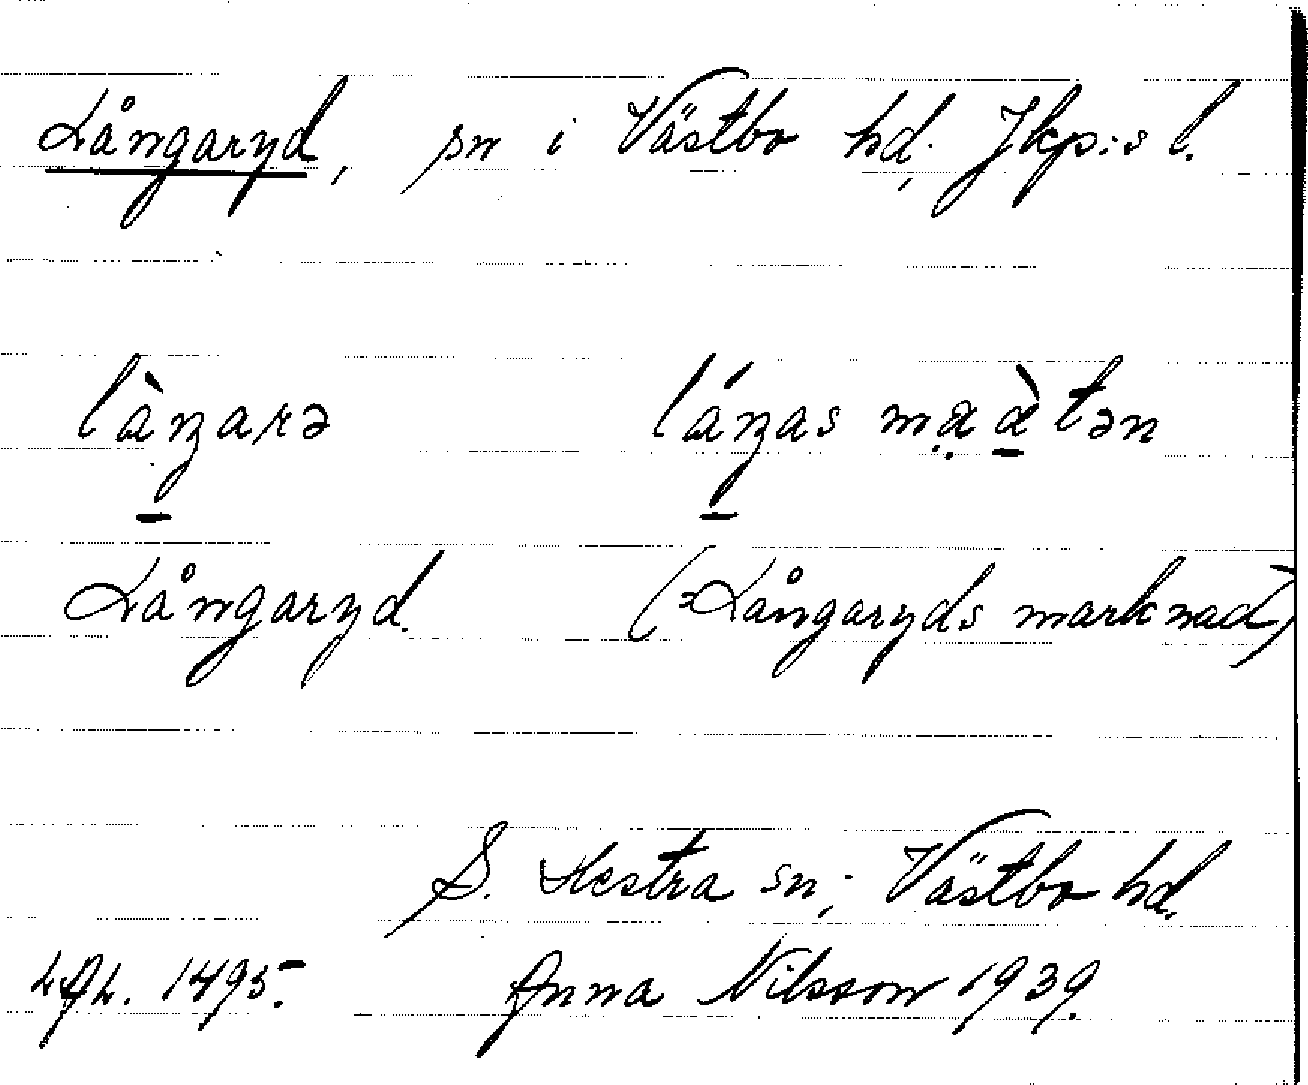 Långaryd, sn i Västbo hd, Jkp:s l.
làŋarə láŋas mạạ̀tən
Långaryd. (=Långaryds marknad)
S. Hestra sn, Västbo hd.
1495. Anna Nilsson 1939.